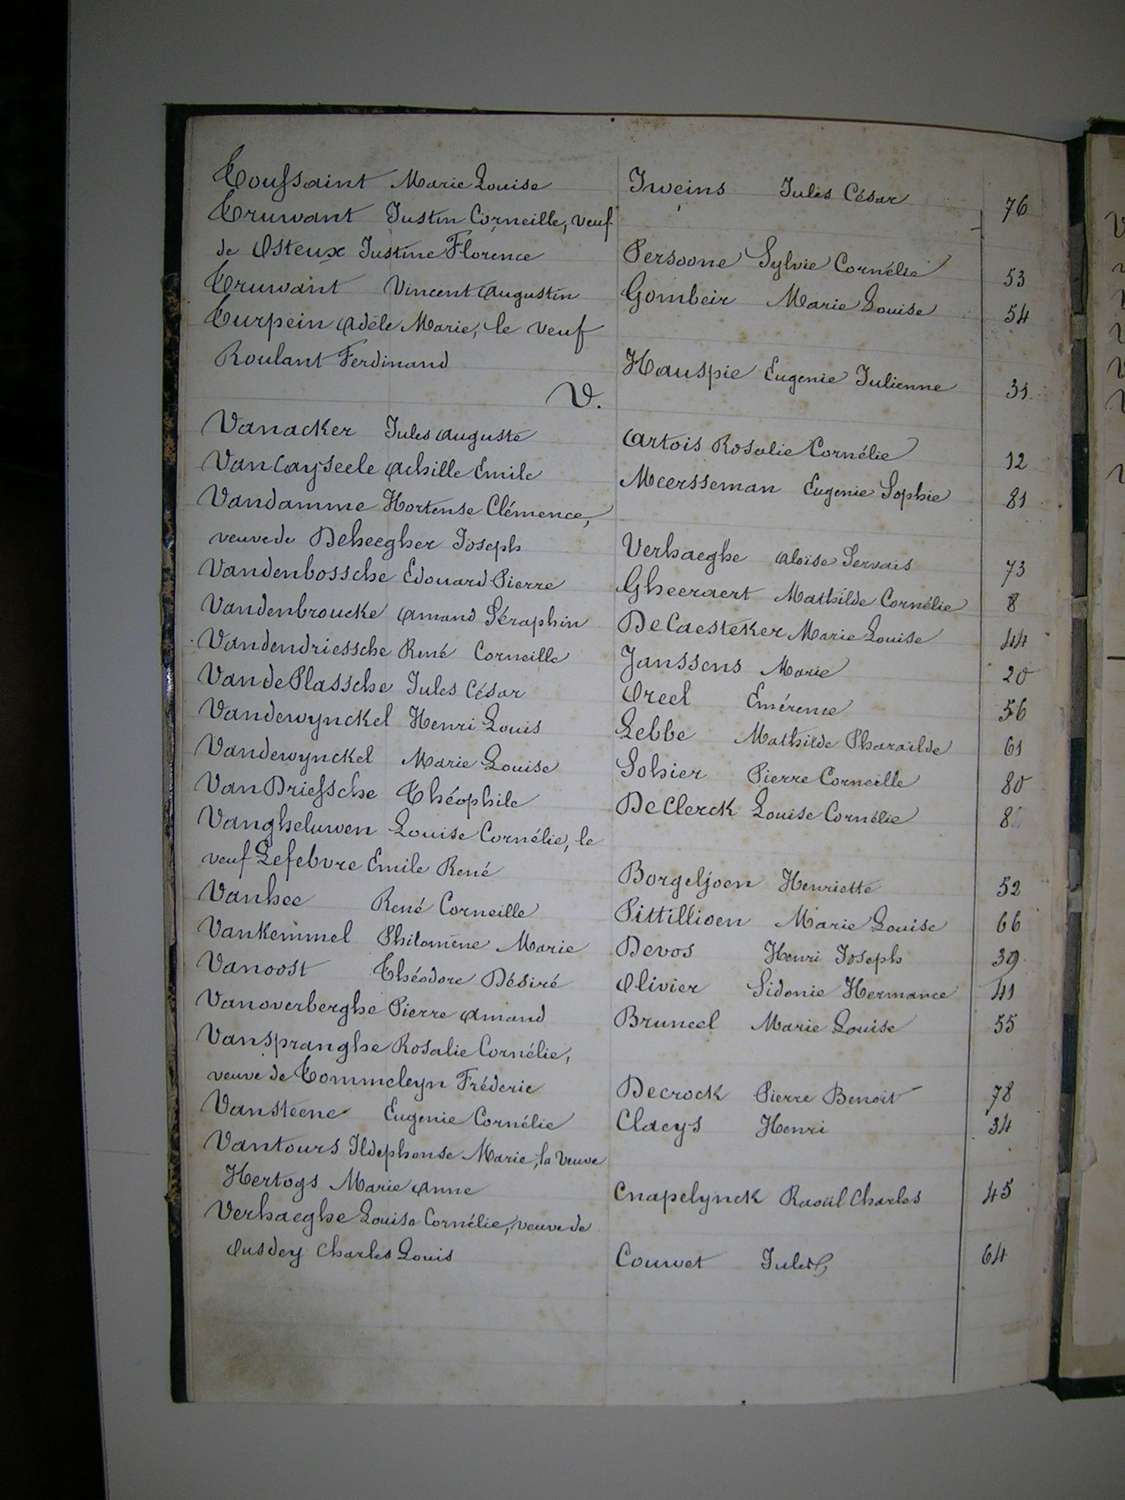 Toussaint Marie Louise Iweins Jules César 76
Truwant Justin Corneille, veuf
de Osteux Justine Florence Persoone Sylvie Cornélie 53
Truwant Vincent Augustin Gombeir Marie Louise 54
Turpein Adèle Marie, le veuf
Roulant Ferdinand Hauspie Eugenie Julienne 31
V.
Vanacker Jules Auguste Artois Rosalie Cornélie 12
VanCayseele Achille Emile Meersseman Eugenie Sophie 81
Vandamme Hortense Clémence,
veuve de Deheegher Joseph Verhaeghe Aloïse Servais 73
Vandenbossche Edouard Pierre Gheeraert Mathilde Cornélie 8
Vandenbroucke Amand Séraphin DeCaesteker Marie Louise 44
Vandendriessche René Corneille Janssens Marie 20
VandePlassche Jules César Oreel Emérence 56
Vandewynckel Henri Louis Lebbe Mathilde Pharaïlde 61
Vandewynckel Marie Louise Sohier Pierre Corneille 80
VanDriessche Théophile DeClerck Louise Cornélie
Vangheluwen Louise Cornélie, le
veuf Lefebvre Emile René Borgeljoen Henriette 52
Vanhee René Corneille Pittillioen Marie Louise 66
Vankemmel Philomène Marie Devos Henri Joseph 39
Vanoost Théodore Désiré Olivier Sidonie Hermance 41
Vanoverberghe Pierre Amand Bruneel Marie Louise 55
Vanspranghe Rosalie Cornélie,
veuve de Tommeleyn Fréderic Decrock Pierre Benoit 78
Vansteene Eugenie Cornélie Claeys Henri 34
Vantours Ildephonse Marie, la veuve
Hertogs Marie Anne Cnapelynck Raoül Charles 45
Verhaeghe Louise Cornélie, veuve de
Ousdey Charles Louis Couvet Jules 64